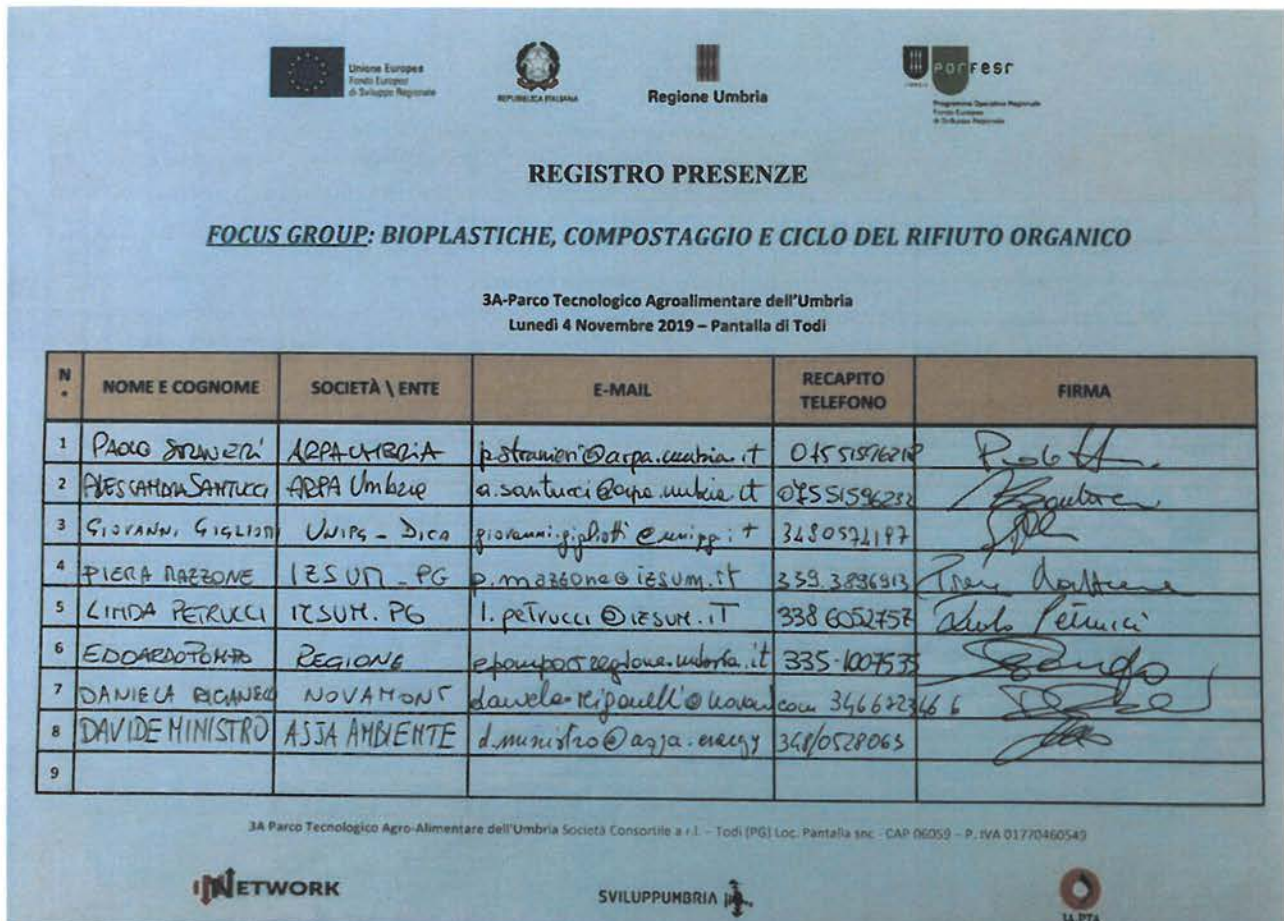 Unione Europea
Fondo Europeo
di Sviluppo Regionale
REPUBBLICA ITALIANA
Regione Umbria
POR FESR
Programma Operativo Regionale
Fondo Europeo
di Sviluppo Regionale
REGISTRO PRESENZE
FOCUS GROUP: BIOPLASTICHE, COMPOSTAGGIO E CICLO DEL RIFIUTO ORGANICO
3A-Parco Tecnologico Agroalimentare dell'Umbria
Lunedì 4 Novembre 2019 – Pantalla di Todi
N° NOME E COGNOME SOCIETÀ \ ENTE E-MAIL RECAPITO TELEFONO FIRMA
1 PAOLO STRANIERI ARPA UMBRIA p.stranieri@arpa.umbria.it
2 ALESSANDRA SANTUCCI ARPA Umbria a.santucci@arpa.umbria.it 07551596232
3 GIOVANNI GIGLIOTTI UNIPG - DICA giovanni.gigliotti@unipg.it 3480574197
4 PIERA MAZZONE IZSUM - PG p.mazzone@izsum.it 339.3896913 Piera Mazzone
5 LINDA PETRUCCI IZSUM. PG l.petrucci@IZSUM.IT 338 6052757 Linda Petrucci
6 EDOARDO POMPO REGIONE epompo@regione.umbria.it 335-1007535
7 DANIELA RIGANELLI NOVAMONT daniela.riganelli@novamont.com 3466823466
8 DAVIDE MINISTRO ASJA AMBIENTE d.ministro@asja.energy 348/0528063
9
3A Parco Tecnologico Agro-Alimentare dell'Umbria Società Consortile a r.l. – Todi (PG) Loc. Pantalla snc - CAP 06059 – P. IVA 01770460549
INNETWORK
SVILUPPUMBRIA
3A PTA